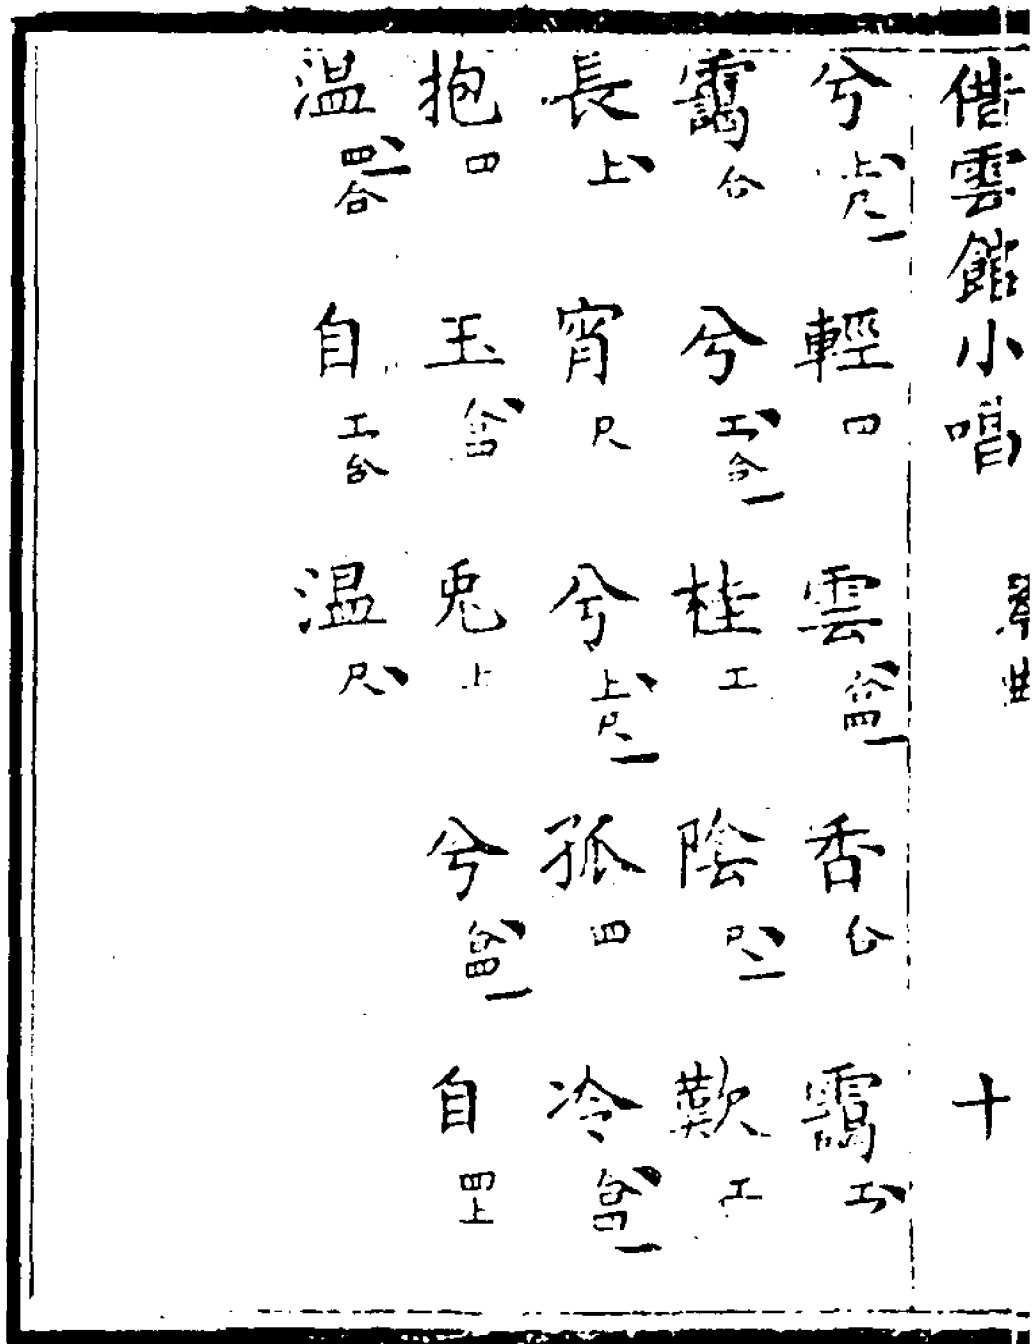 借雲館小唱 琴曲 十
兮上尺 輕四 雲合四 香合 靄工
靄合 兮工合 桂工 陰尺 歎工
長上 宵尺 兮上尺 孤四 冷合四
抱四 玉合四 兎上 兮合四 自四上
温四合 自工合 温尺